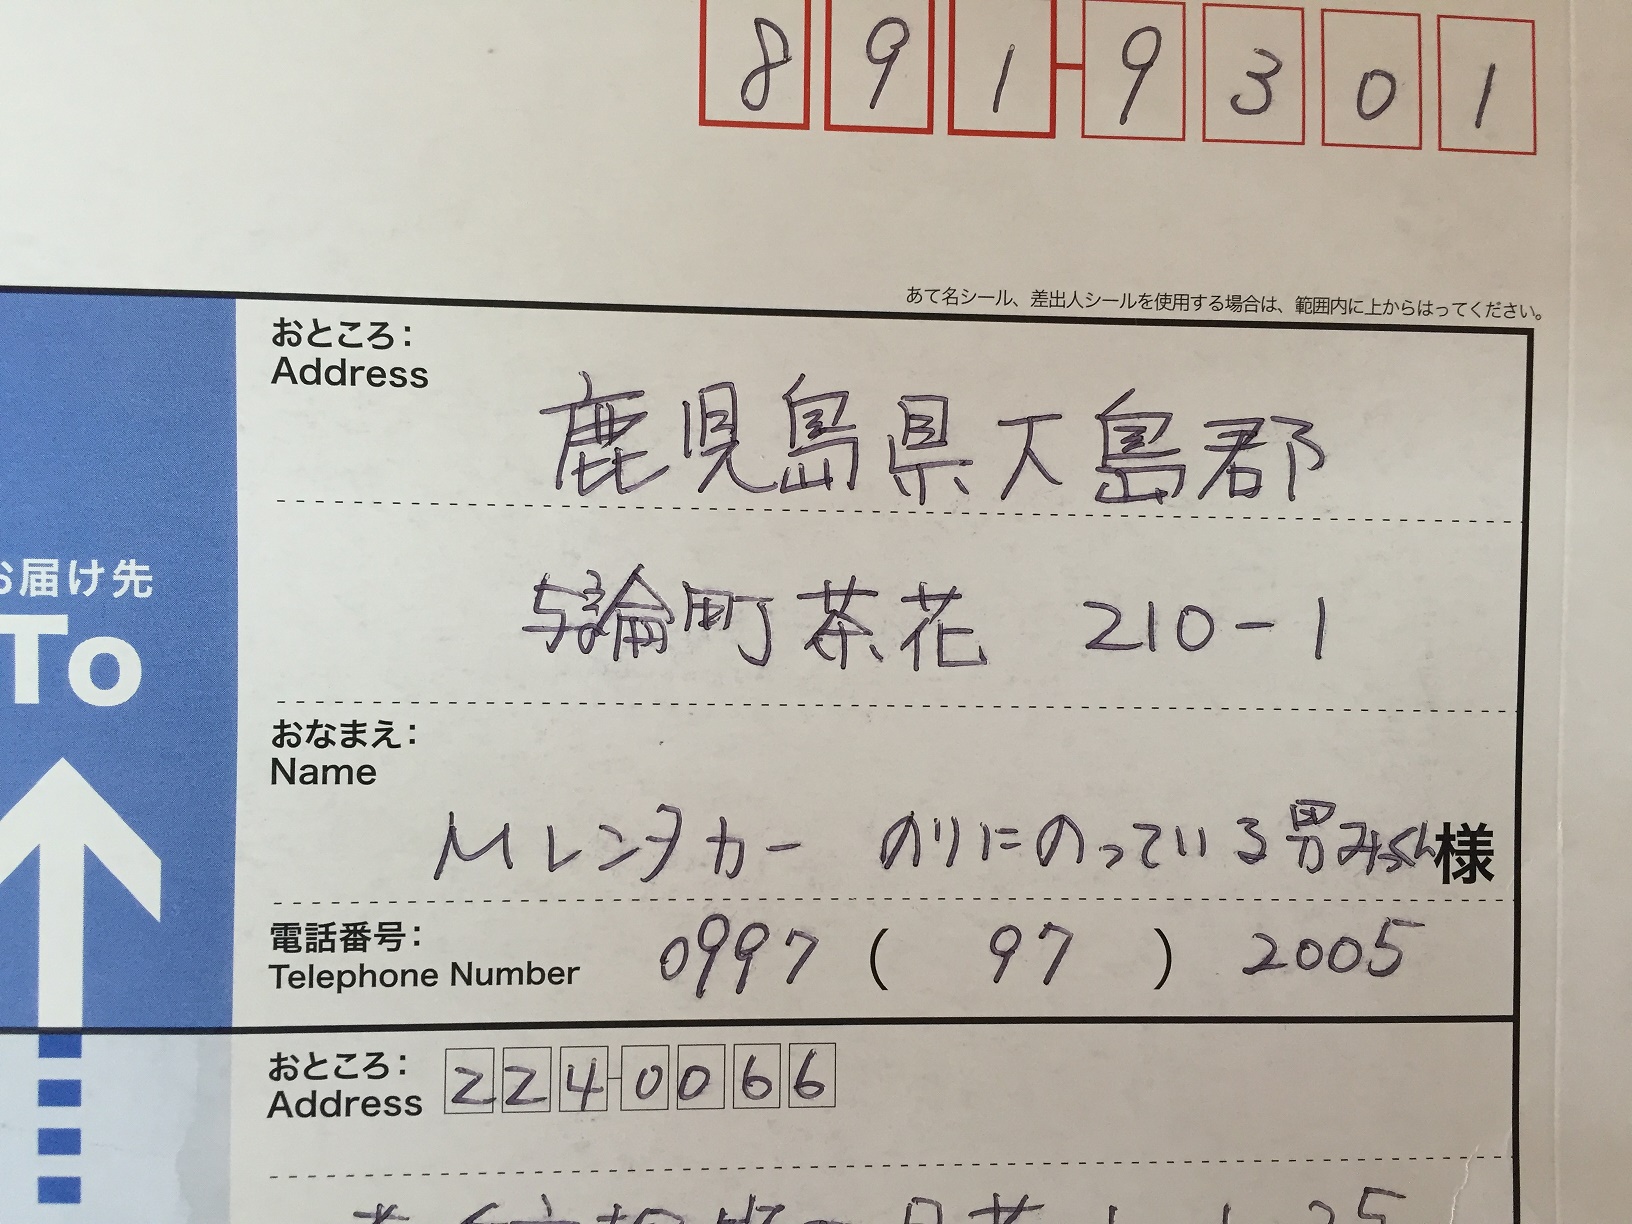 891-9301
あて名シール、差出人シールを使用する場合は、範囲内に上からはってください。
おところ:
Address
鹿児島県大島郡
与論町茶花 210-1
お届け先
To
おなまえ:
Name
Mレンタカー のりにのっている男みっくん様
電話番号:
Telephone Number 0997 ( 97 ) 2005
おところ:
Address 224-0066